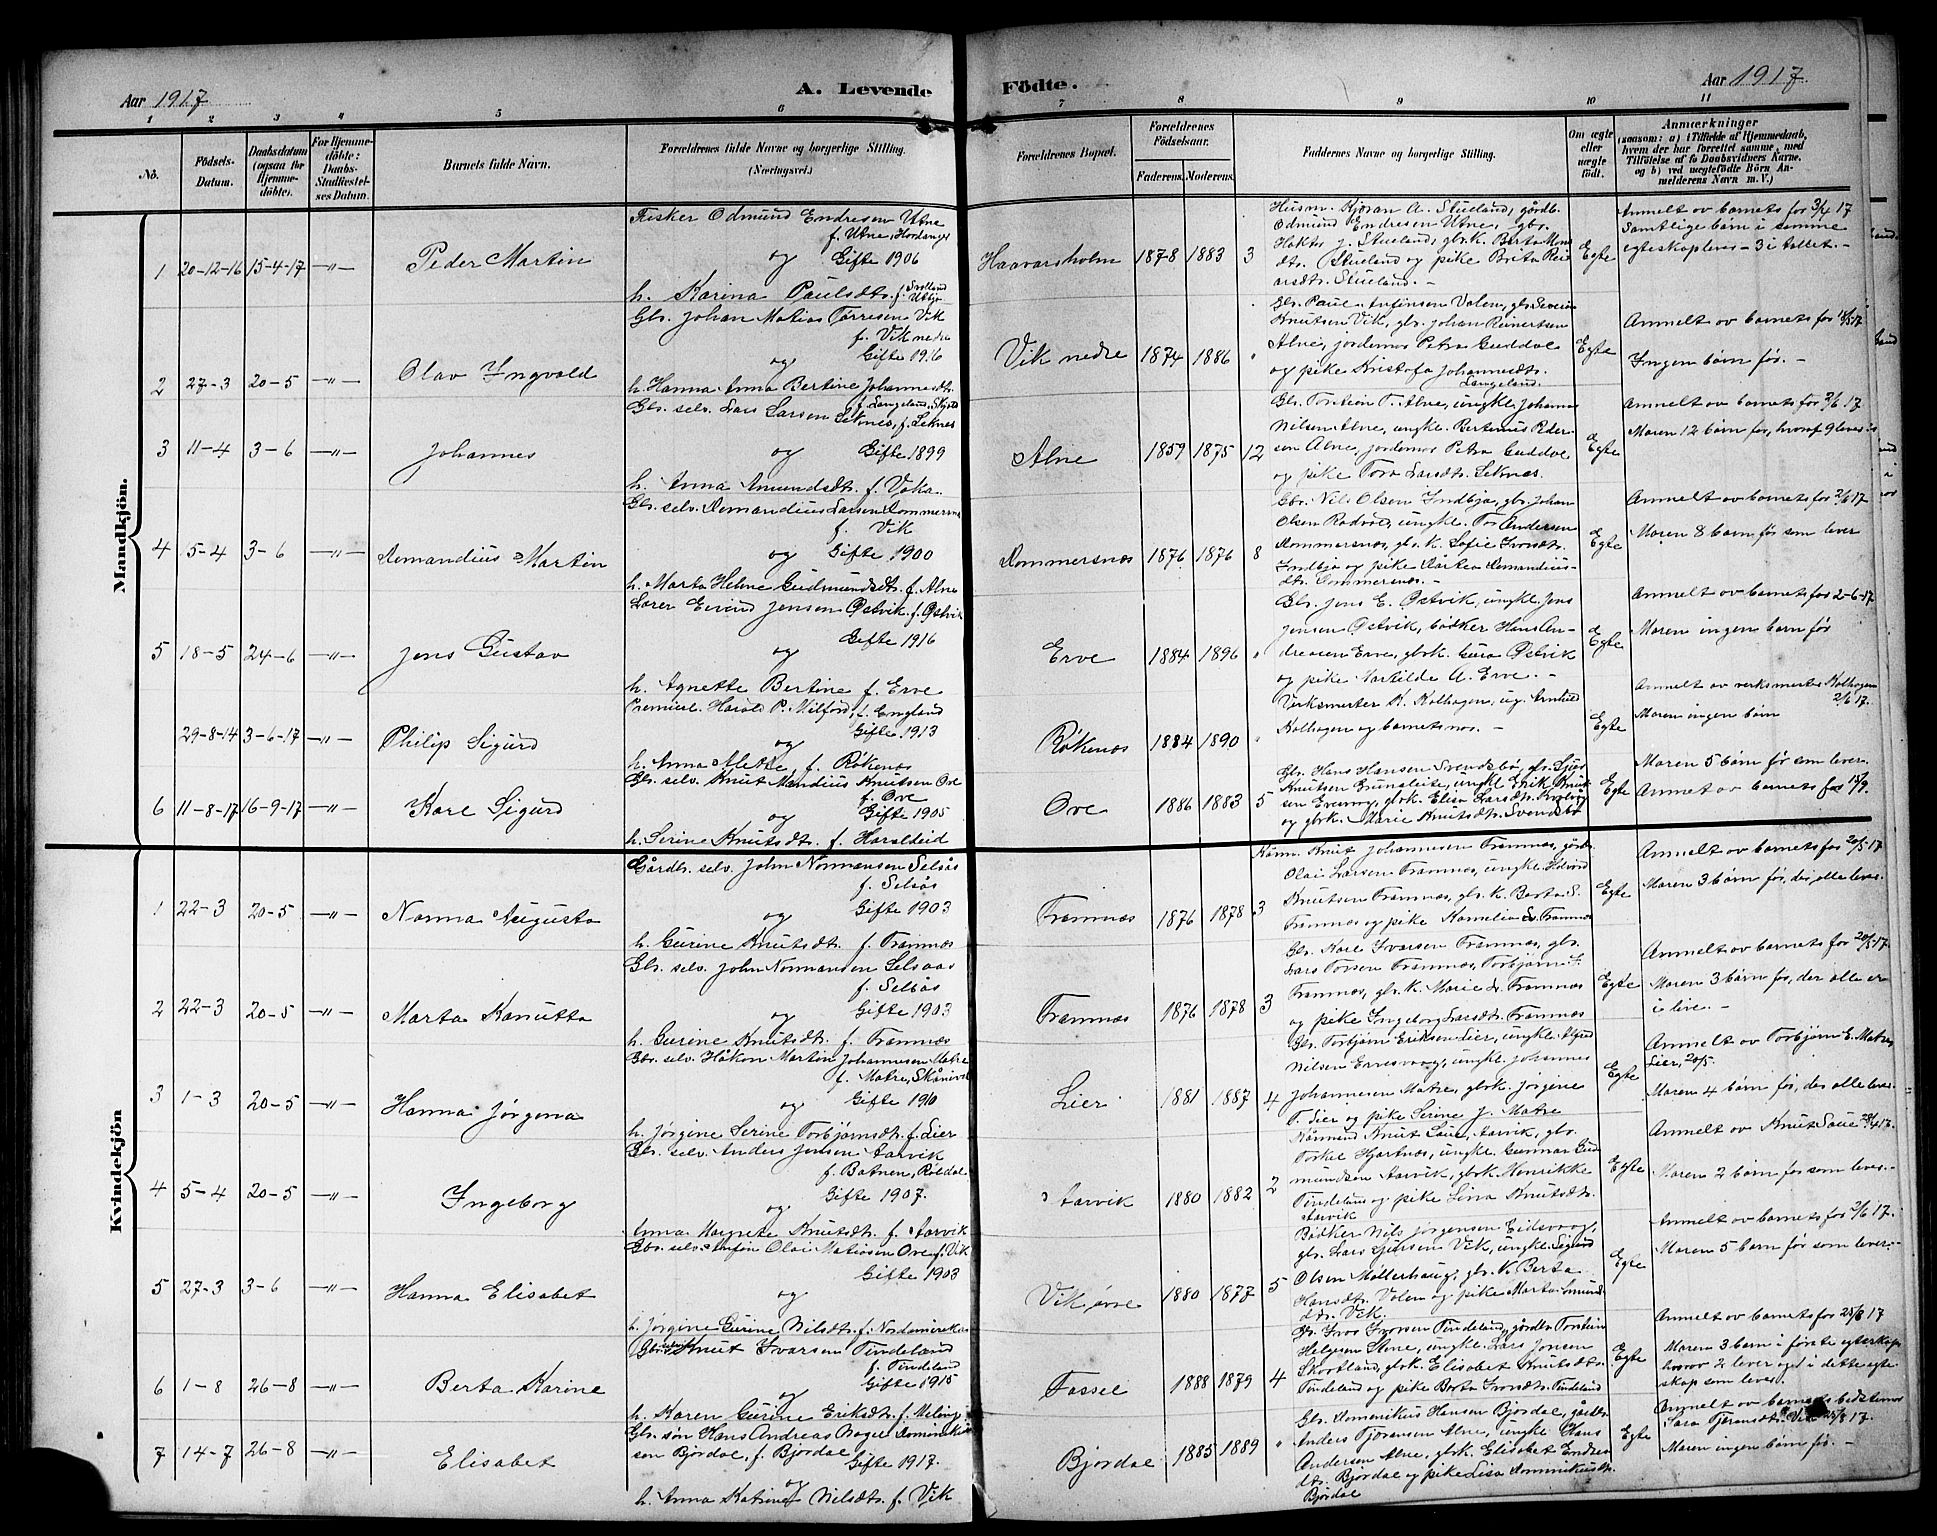 Aar 1917
A. Levende
Födte.
Aar 1917
1 2 3 4 5 6 7 8 9 10 11
No.
Födsels-
Datum.
Daabsdatum
(ogsaa for
Hjemme-
döbte).
For Hjemme-
döbte:
Daabs-
Stadfæstel-
ses Datum.
Barnets fulde Navn.
Forældrenes fulde Navne og borgerlige Stilling.
(Næringsvei.)
Forældrenes Bopæl.
Forældrenes
Födselsaar.
Faderens.
Moderens.
Faddernes Navne og borgerlige Stilling.
Om ægte
eller
uægte
födt.
Anmærkninger
(saasom: a) i Tilfælde af Hjemmedaab,
hvem der har forrettet samme, med
Tilföielse af to Daabsvidners Navne,
og b) ved uægtefödte Börn An-
melderens Navn m. V.)
Mandkjön.
1 20-12-16 15-4-17 —"— Peder Martin
Fisker Odmund Endresen Utne
f. Utne, Hordanger
og Gifte 1906
h. Karina Paulsdtr. f.
Haavarsholm 1878 1883 3
Husm. Björan A. Stueland, gårdb.
Odmund Endresen Utne, gbr.
J. Stueland, gbrk. Berta
dtr. Stueland og pike Brita Rei
arsdtr. Stueland. —
Egte
Anmelt av barnets for 3/4 17
Samtlige barn i samme
egteskap leves — 3 i tallet. —
2 27-3 20-5 —"— Olav Ingvald
Gbr. Johan Matias Tørresen Vik
f. Vik nedre
og Gifte 1916
h. Hanna Anna Bertine Johannesdtr.
f. Langeland,
Vik nedre 1874 1886 "
Gbr. Paul Anfinsen Valen, gbr. Severin
Knutsen Vik, gbr. Johan Reinertsen
Alne, jordemor Petra Guddal
og pike Kristofa Johannesdtr.
Langeland.
Egte
Anmelt av barnets for
Ingen børn før. —
3 11-4 3-6 —"— Johannes
Gbr. selv. Lars Larsen Leknes, f. Leknes
og Gifte 1899
h. Anna Amundsdtr. f. Vaka.
Alne 1859 1875 12
Gbr. Torstein T. Alne, ungk. Johannes
Nilsen Alne, ungk. Bertinius Peder-
sen Alne, jordemor Petra Guddal
og pike Tora Larsdtr. Leknes.
Egte
Anmelt av barnets for 2/6 17
Moren 12 børn før, hvoraf 9 leves
4 5-4 3-6 —"— Amandius Martin
Gbr. selv. Amandius Larsen Ommersnes
f. Vik
og Gifte 1900
h. Marta Helene Gudmundsdtr. f. Alne
Ommersnes 1876 1876 8
Gbr. Nils Olsen Indbjo, gbr. Johan
Olsen Rødsæt, ungk. Tor Andersen
Ommersnes, gbr. k. Sofie Ivarsdtr.
Indbjo og pike Amandius-
dtr. Ommersnes. —
Egte
Anmelt av barnets for 2/6 17
Moren 8 børn før som lever
5 18-5 24-6 —"— Jens Gustav
Lærer Eivind Jensen Østvik f. Østvik
Gifte 1916
og
h. Agnette Bertine f. Erve
Erve 1884 1896 "
Gbr. Jens E. Østvik, ungk. Jens
Jensen Østvik, bødker Hans An-
dreasen Erve, gbrk. Guro Østvik
og pike Matilde A. Erve. —
Egte
Anmelt av barnets for 2-6-17
Moren ingen barn før
29-8-14 3-6-17 —"— Philip Sigurd
Harald P. Milford, f. England
Gifte 1913
og
h. Anna Mette, f. Røkenes
Røkenes 1884 1890 "
Verksmester K. Kolhagen, ug.
Kolhagen og barnets mor. —
Egte
Anmelt av verksmester Kolhagen
2/6 17.
Moren ingen børn
6 11-8-17 16-9-17 —"— Kåre Sigurd
Gbr. selv. Knut Mandius Knutsen Ove
f. Ove
Gifte 1905
og
h. Serine Knutsdtr. f. Haraldeid
Ove 1886 1883 5
Gbr. Hans Hansen Svendsbø, gbr.
og gbrk. Marie Knutsdtr. Svendsbø
Egte
Moren 5 børn før som lever.
Anmelt av barnets for 15/9.
Kvindekjön
1 22-3 20-5 —"— Nanna Augusta
Gårdbr. selv. John Normansen Selsås
f. Selsås
og Gifte 1903
h. Gurine Knutsdtr. f. Framnæs
Framnæs 1876 1878 3
Kårm. Knut Johannesen Framnæs, gårdbr.
Olai Larsen Framnæs, ungk. Halvard
Knutsen Framnæs, gbr. k. Berta S.
Framnæs og pike Kornelia L. Framnæs
Egte
Anmelt av barnets for 20/5 17
Moren 3 børn før, der alle lever.
2 22-3 20-5 —"— Marta Kanutta
Gbr. selv. John Normansen Selsaas
f. Selsås
og Gifte 1903
h. Gurine Knutsdtr. f. Framnæs
Framnæs 1876 1878 3
Gbr. Kåre Ivarsen Framnæs, gbr.
Lars Torsen Framnæs, Torbjørn L.
Framnæs, gbr. k. Marie L. Framnæs
og pike Ingeborg Larsdtr. Framnæs
Egte
Anmelt av barnets for 20/5 17
Moren 3 børn før, der alle er
i live. —
3 1-3 20-5 —"— Hanna Jørgena
Gbr. selv. Håkon Martin Johannesen Matre
f. Matre, Skånevik
og Gifte 1910
h. Jørgine Serine Torbjørnsdtr. f. Lier
Lier 1881 1887 4
Gbr. Torbjørn Eriksen Lier, ungk. Alfred
Nilsen Ernesvaag, ungk. Johannes
Johannesen Matre, gbrk. Jørgine
T. Lier og pike Serine J. Matre
Egte
Anmelt av Torbjørn E. Matre,
Lier, 20/5.
Moren 4 børn før, der alle lever.
4 5-4 20-5 —"— Ingeborg
Gbr. selv. Anders Jensen Aarvik
f. Botnen, Røldal
Gifte 1907.
og
Anna Margrete Knutsdtr. f. Aarvik
Aarvik 1880 1882 2
Kårmand Knut Saue, Aarvik, gbr.
Torkel Hjartnæs, ungk. Gunnar Gud
mundsen Aarvik, gbrk. Henrikke
Tindeland og pike Lina Knutsdtr.
Aarvik
Egte
Anmelt av Knut Saue 28/4 17.
Moren 2 børn før som lever.
5 27-3 3-6 —"— Hanna Elisabet
Gbr. selv. Anfin Olai Matiasen Ove f. Vik
Gifte 1903
og
h. Jørgine Gurine Nilsdtr. f. Nordamerika
Vik, øvre 1880 1877 5
Bødker Nils Jørgensen Eidsvaag,
gbr. Lars Vik, ungk. Sigurd
Olsen Møllerhaug, gbr. k. Berta
Hansdtr. Valen og pike Marta
dtr. Vik
Egte
Anmelt av barnets for 2/6 17.
Moren 5 børn før som lever.
6 1-8 26-8 —"— Berta Karine
Knut Ivarsen Tindeland
f. Tindeland
Gifte 1915
og
h. Karen Gurine Eriksdtr. f.
Fossel 1888 1879 4
Gbr. Ivar Ivarsen Tindeland, gårdbr. Torstein
Helgesen Stene, ungk. Lars Jonsen
Skartland, gbrk. Elisabet Knutsdtr.
Tindeland og pike Berta Ivarsdtr. Tindeland
Egte
Anmelt av barnets for 25/8 17
Moren 3 børn i første egteskap
hvorav 2 lever og 1 i dette egte
skap som lever.
7 14-7 26-8 Elisabet
Gbr. søn Hans Andreas Dominikus-
sen Bjørdal, f. Bjørdal Gifte 1917.
og
h. Anna Katrine Nilsdtr. f. Vik
Bjørdal 1885 1889 "
Gbr. Domenikus Hansen Bjørdal, gårdbr.
Anders Tjøransen Alne, ungk. Hans
Andersen Alne, gbrk. Elisabet Endres
dtr. Bjørdal og pike Lisa Dominikusdtr.
Bjørdal
Egte
Anmelt av barnets bedstemor
Sara Tjøransdtr. Vik 25/8 17.
Moren ingen børn før. —